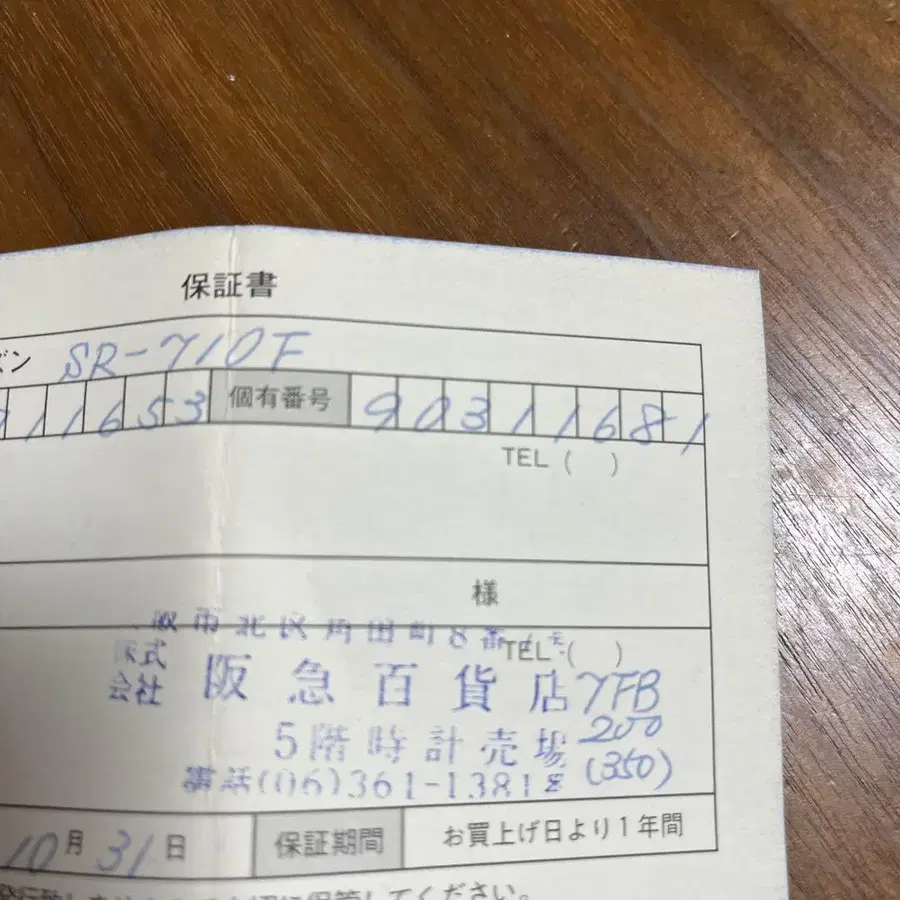 保証書
ズン SR-710F
911653 個有番号 90311681
TEL ( )
様
阪市北区角田町8番
TEL ( )
株式会社 阪急百貨店 YFB
5階時計売場 200
電話(06)361-1381 (350)
10月31日 保証期間 お買上げ日より1年間
てください。